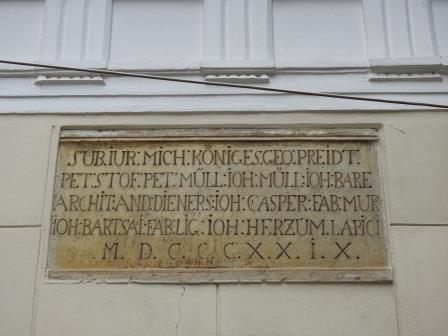 SUB.IUR: MICH: KÖNIGES.GEO: PREIDT.
PET.STOF.PET: MÜLL:IOH: MÜLL:IOH:BARE
ARCHIT:AND:DIENERS:IOH: CASPER:FAB:MUR.
IOH:BARTSAI:FAB:LIG: IOH: HERZUM.LAPICI
M.D.C.C.C.X.X.I.X.